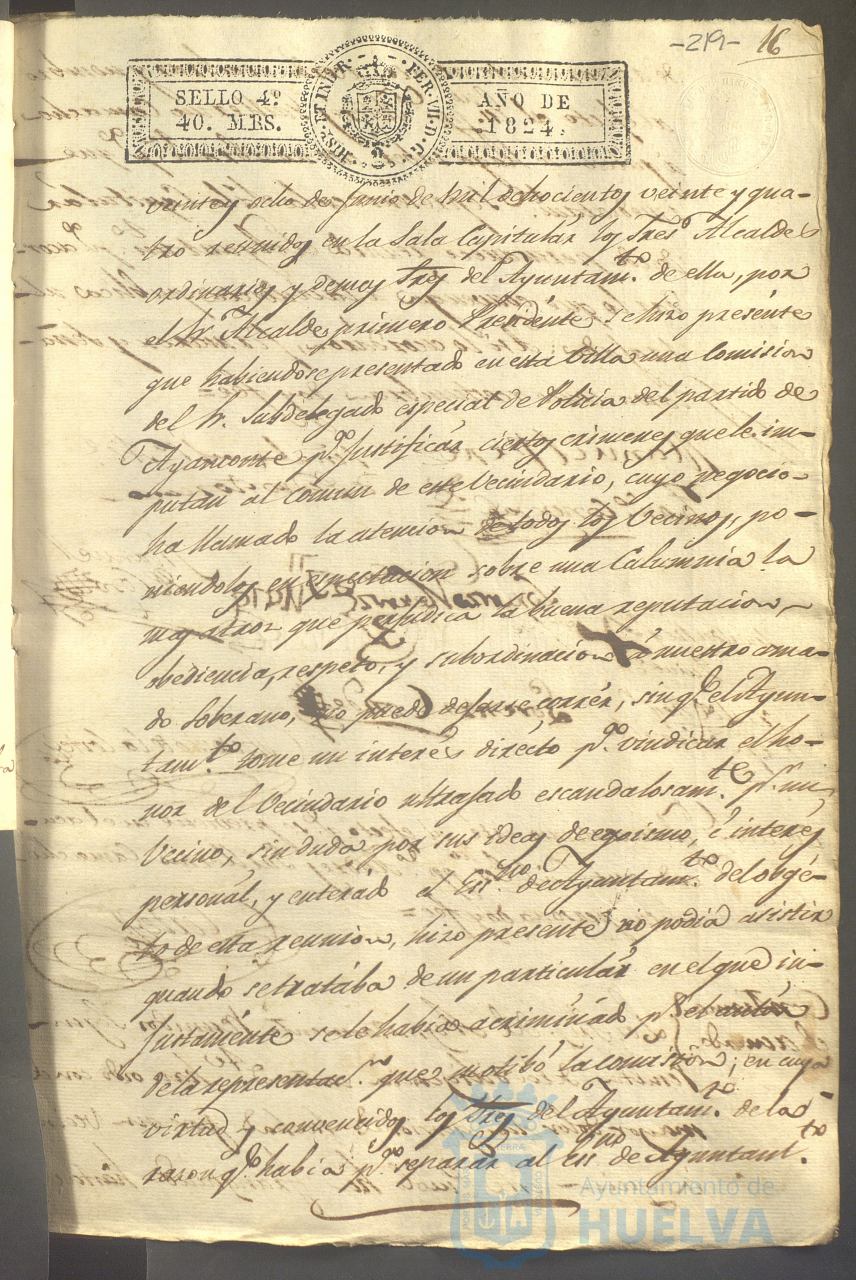 -219- 16
SELLO 4º
40. MRS.
FER. VII. D. G.
AÑO DE
1824.
veinte y ocho de Junio de mil ochocientos veinte y qua-
tro reunidos en la Sala Capitular los Sres. Alcaldes
ordinarios y demas Sres del Ayuntam.to de ella, por
el Sr. Alcalde primero Presidente se hizo presente
que habiendose presentado en esta Villa una Comision
del Sr. Subdelegado especial de Policia del partido de
Ayamonte p.a justificar ciertos crimenes que le im-
putan al comun de este Vecindario, cuyo negocio
ha llamado la atencion de todos los Vecinos, po-
niendolos en espectacion sobre una Calumnia la
mas atroz que perjudica la buena reputacion,
obediencia, respeto, y subordinacion á nuestro ama-
do Soberano, no puede dejarse correr, sin q.e el Ayun-
tam.to tome un interes directo p.a vindicar el ho-
nor del Vecindario ultrajado escandalosam.te p.r un
Vecino, sin duda por sus ideas de egoismo, é interes
personal, y enterado el Ess.no de Ayuntam.to del obge-
to de esta reunion, hizo presente no podia asistir
quando se trataba de un particular en el que in-
justamente se le habia acriminado p.r el autor
de la representac.n que motibó la comision; en cuya
virtud y convencidos los Sres del Ayuntam.to de la
razon q.e habia p.a separar al Ess.no de Ayuntam.to
Ayuntamiento de
HUELVA